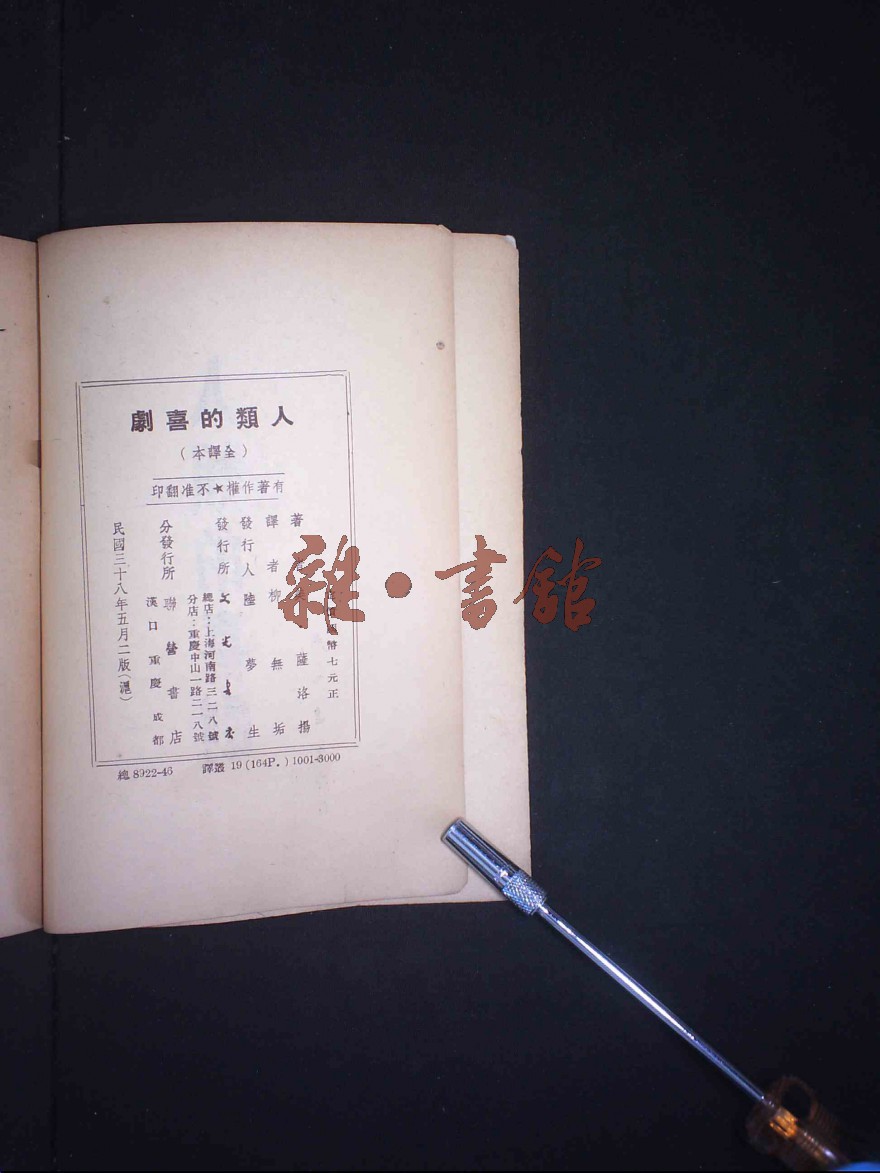 人類的喜劇
（全譯本）
有著作權★不准翻印
幣七元正
著 薩洛揚
譯者 柳無垢
發行人 陸夢生
發行所 文光書店
總店：上海河南路三二八號
分店：重慶中山一路二一八號
分發行所 聯營書店
漢口 重慶 成都
民國三十八年五月二版（滬）
總 8922-46 譯叢 19 (164P.) 1001-3000
雜·書館